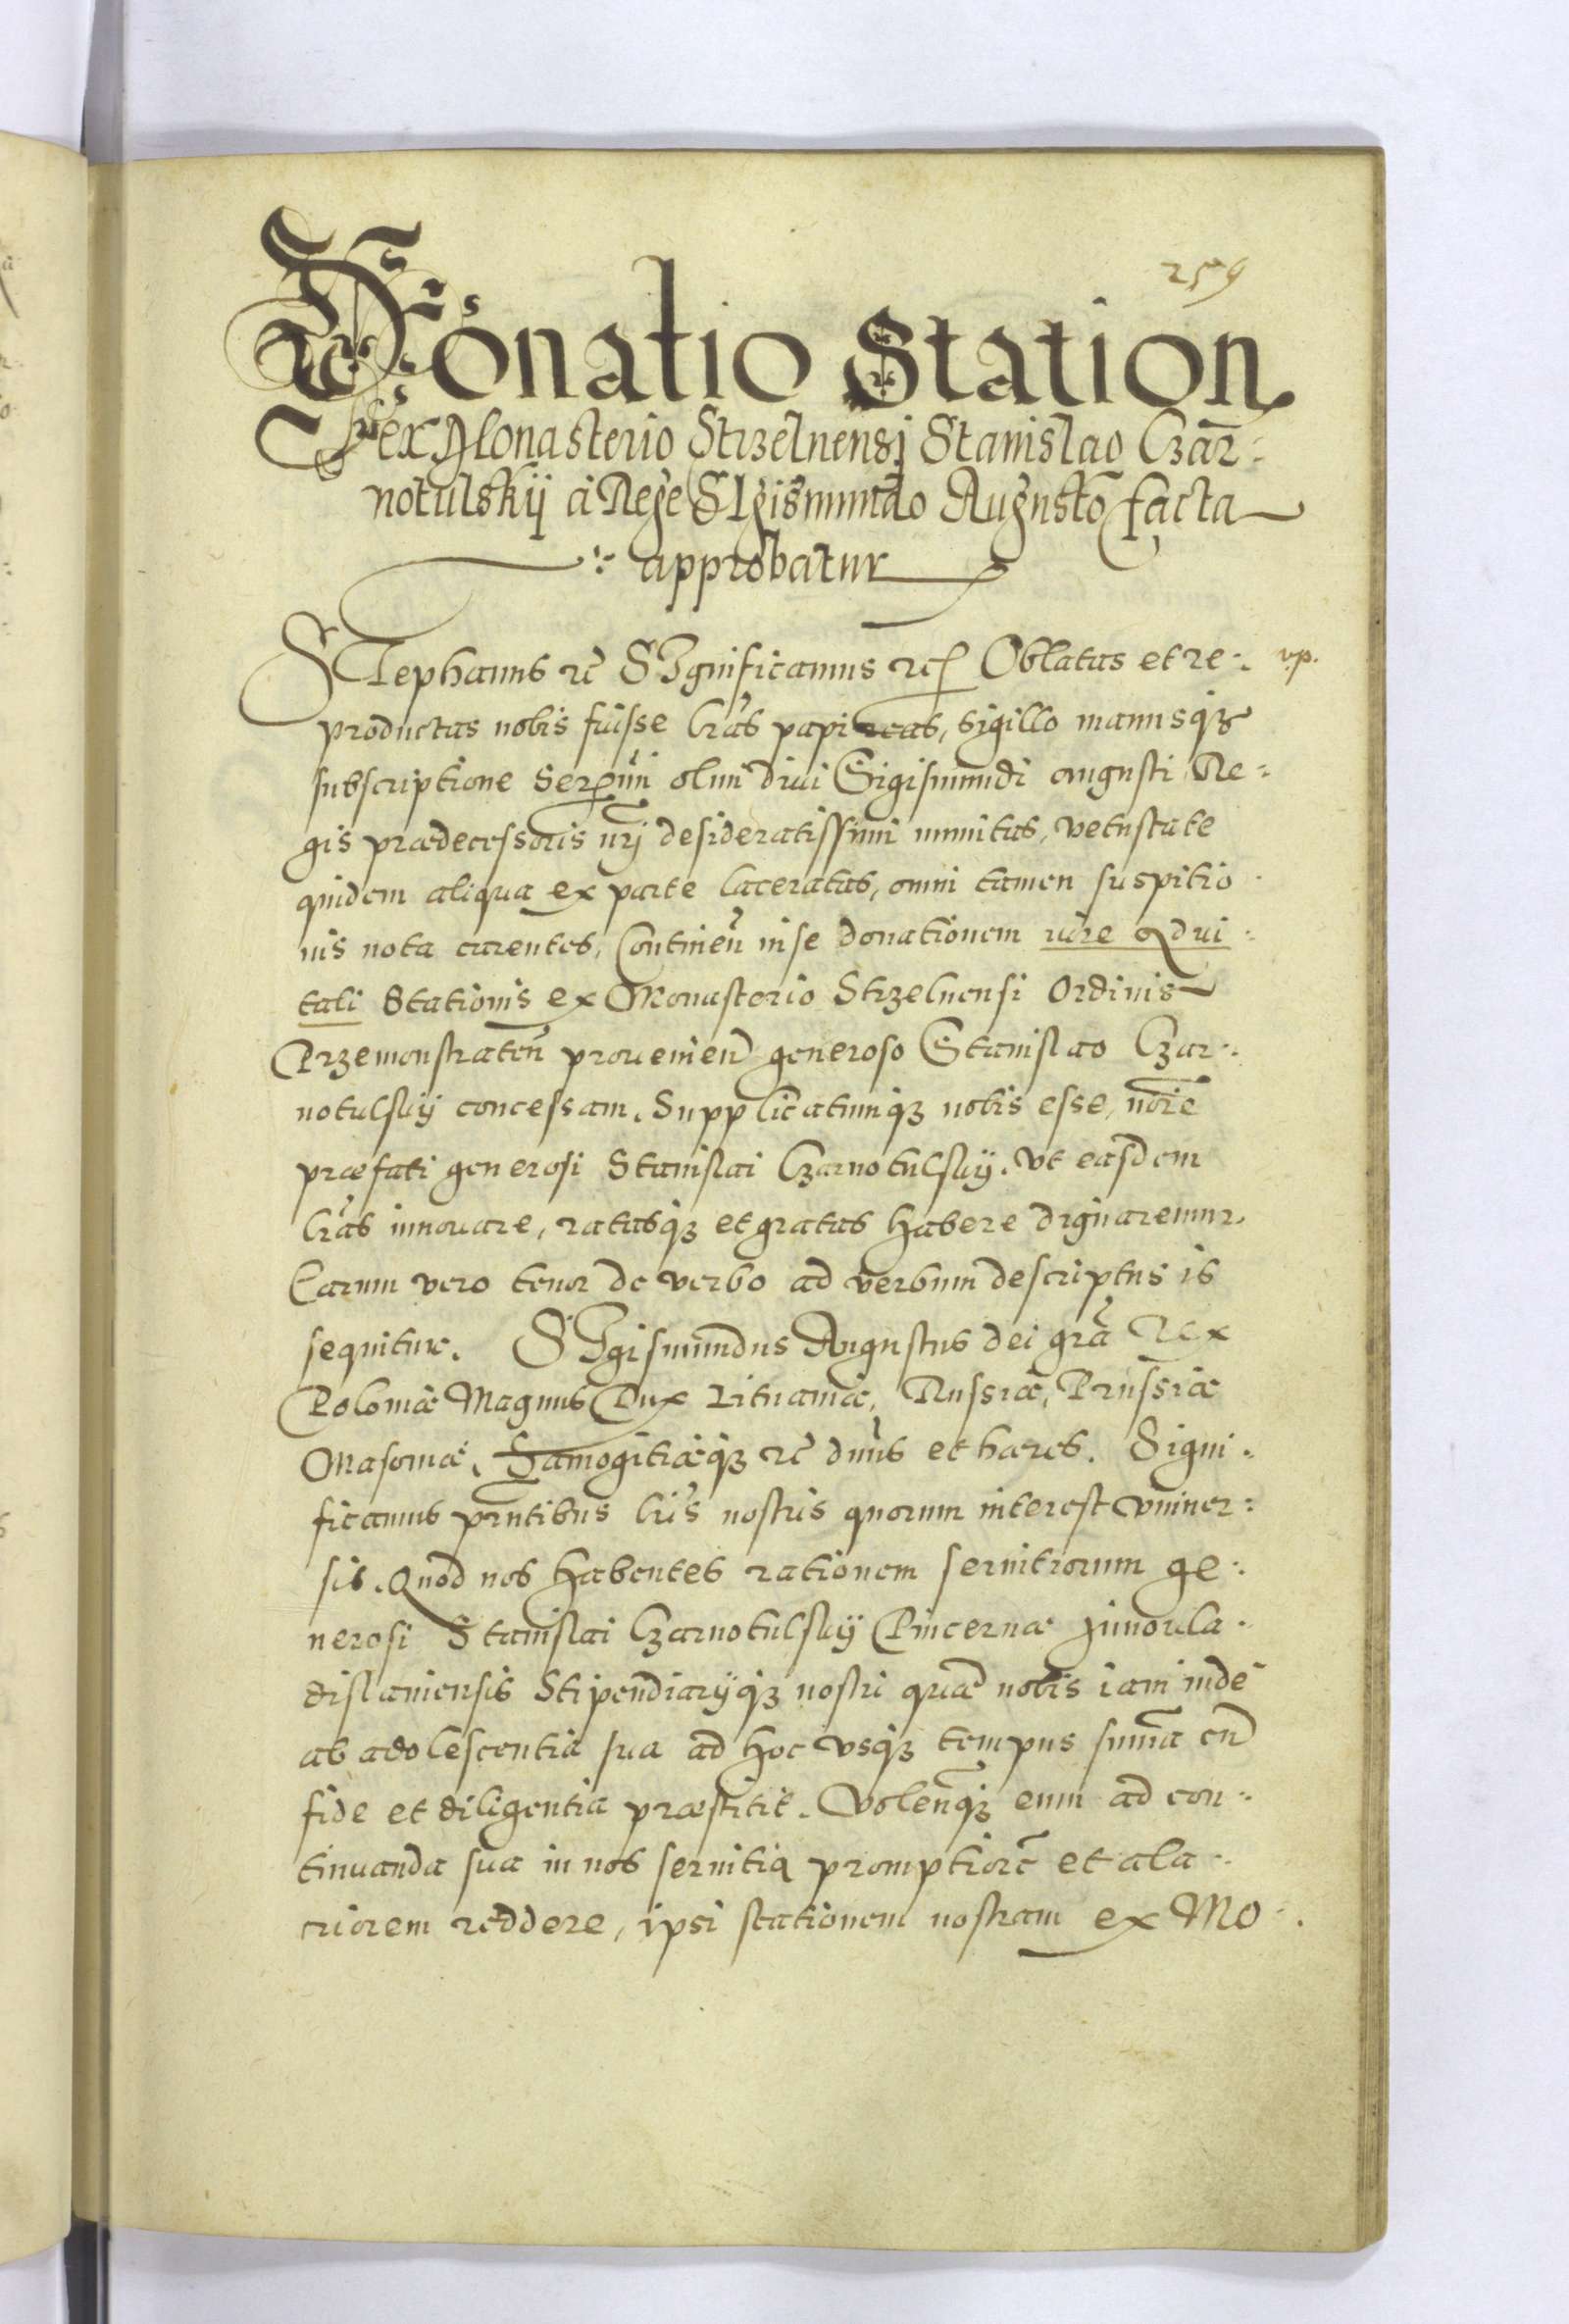 259
Donatio Station
ex Monasterio Strzelnensi Stanislao Czar-
notulskij a Rege SIgismundo Augusto facta
approbatur
STephanus etc SIgnificamus etc Oblatas et re- vp.
productas nobis fuisse lrãs papireas, sigillo manusqз
subscriptione Sermi olim diui Sigismundi augusti Re-
gis prædecessoris nrj desideratissimi munitas, vetustate
quidem aliqua ex parte laceratas, omni tamen suspitio
nis nota carentes, Continen̄ in se donationem iure adui-
tali Stationis ex Monasterio Strzelnensi Ordinis
Przemonstraten̄ prouenien̄ generoso Stanislao Czar-
notulskij concessam. Supplicatumqз nobis esse, noīe
præfati generosi Stanislai Czarnotulskij. Vt easdem
lrãs innouare, ratasqз et gratas habere dignaremur.
Earum vero tenor de verbo ad verbum descriptus is
sequitur. SIgismundus Augustus dei grã Rex
Poloniæ Magnus Dux Lituaniæ, Russiæ, Prussiæ
Masouiæ, Samogitiæqз etc dnus et hæres. Signi-
ficamus pñtibus lris nostris quorum interest vniuer-
sis. Quod nos habentes rationem seruitiorum ge-
nerosi Stanislai Czarnotulskij Pincernæ Junoula-
dislauiensis Stipendiarijqз nostri quæ nobis iam inde
ab adolescentia sua ad hoc vsqз tempus suma cũ
fide et diligentia præstitit. Volen̄qз eum ad con-
tinuanda sua in nos seruitia promptiorẽ et ala-
criorem reddere, ipsi stationem nostram ex Mo-